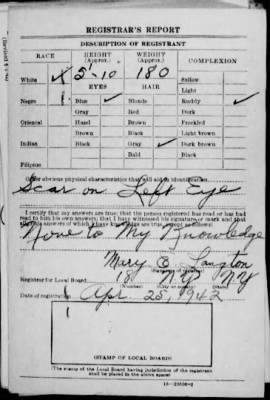 REGISTRAR'S REPORT
DESCRIPTION OF REGISTRANT
RACE HEIGHT (Approx.) WEIGHT (Approx.) COMPLEXION
White ✓ 5'-10 180 Sallow
EYES HAIR Light
Negro Blue ✓ Blonde Ruddy ✓
Gray Red Dark
Oriental Hazel Brown Freckled
Brown Black Light brown
Indian Black Gray ✓ Dark brown
Bald Black
Filipino
Other obvious physical characteristics that will aid in identification
Scar on Left Eye
I certify that my answers are true; that the person registered has read or has had
read to him his own answers; that I have witnessed his signature or mark and that
all of his answers of which I have knowledge are true, except as follows:
None to My Knowledge
Mary
Registrar for Local Board 181 N.Y. NY
(Number) (City or county)
Date of registration Apr. 25, 1942
(STAMP OF LOCAL BOARD)
(The stamp of the Local Board having jurisdiction of the registrant
shall be placed in the above space)